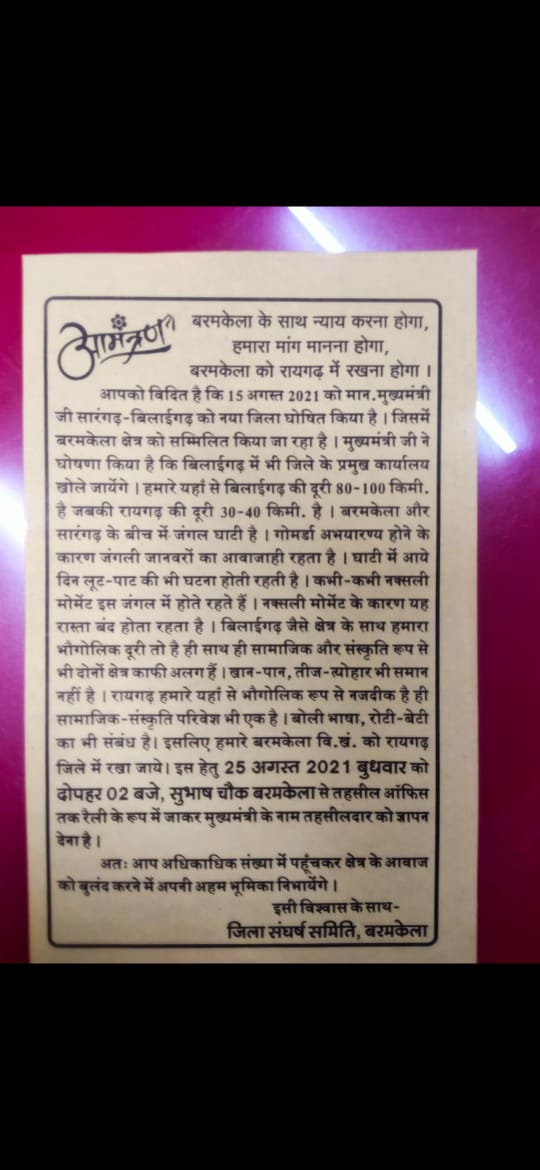 आमंत्रण
बरमकेला के साथ न्याय करना होगा,
हमारा मांग मानना होगा,
बरमकेला को रायगढ़ में रखना होगा ।
आपको विदित है कि 15 अगस्त 2021 को मान.मुख्यमंत्री
जी सारंगढ़-बिलाईगढ़ को नया जिला घोषित किया है । जिसमें
बरमकेला क्षेत्र को सम्मिलित किया जा रहा है । मुख्यमंत्री जी ने
घोषणा किया है कि बिलाईगढ़ में भी जिले के प्रमुख कार्यालय
खोले जायेंगे । हमारे यहाँ से बिलाईगढ़ की दूरी 80-100 किमी.
है जबकी रायगढ़ की दूरी 30-40 किमी. है । बरमकेला और
सारंगढ़ के बीच में जंगल घाटी है । गोमर्डा अभयारण्य होने के
कारण जंगली जानवरों का आवाजाही रहता है । घाटी में आये
दिन लूट-पाट की भी घटना होती रहती है । कभी-कभी नक्सली
मोमेंट इस जंगल में होते रहते हैं । नक्सली मोमेंट के कारण यह
रास्ता बंद होता रहता है । बिलाईगढ़ जैसे क्षेत्र के साथ हमारा
भौगोलिक दूरी तो है ही साथ ही सामाजिक और संस्कृति रूप से
भी दोनों क्षेत्र काफी अलग हैं । खान-पान, तीज-त्योहार भी समान
नहीं है । रायगढ़ हमारे यहाँ से भौगोलिक रूप से नजदीक है ही
सामाजिक-संस्कृति परिवेश भी एक है । बोली भाषा, रोटी-बेटी
का भी संबंध है। इसलिए हमारे बरमकेला वि.खं. को रायगढ़
जिले में रखा जाये। इस हेतु 25 अगस्त 2021 बुधवार को
दोपहर 02 बजे, सुभाष चौक बरमकेला से तहसील ऑफिस
तक रैली के रूप में जाकर मुख्यमंत्री के नाम तहसीलदार को ज्ञापन
देना है ।
अतः आप अधिकाधिक संख्या में पहूँचकर क्षेत्र के आवाज
को बुलंद करने में अपनी अहम भूमिका निभायेंगे ।
इसी विश्वास के साथ-
जिला संघर्ष समिति, बरमकेला